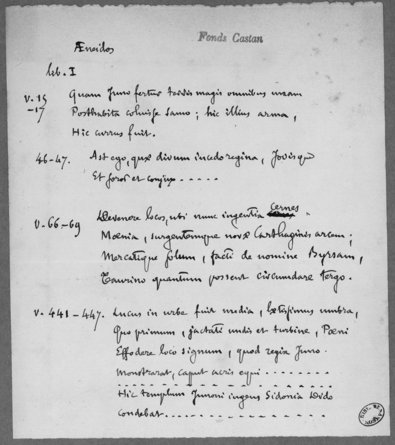 Fonds Castan
Æneidos
lib. I
v. 15
-17
Quam Juno fertur terris magis omnibus unam
Posthabita coluisse Samo ; hic illius arma,
Hic currus fuit.
46-47. Ast ego, quæ divum incedo regina, Jovisque
Et soror et conjux - - - - -
v. 66-69 Devenere locos, ubi nunc ingentia cernes
Mœnia, surgentemque novæ Carthaginis arcem ;
Mercatique solum, facti de nomine Byrsam,
Taurino quantum possent circumdare tergo.
v. 441-447. Lucus in urbe fuit media, lætissimus umbra,
Quo primum, jactati undis et turbine, Pœni
Effodere loco signum, quod regia Juno
Monstrarat, caput acris equi . . . . . . . .
Hic templum Junoni ingens Sidonia Dido
Condebat. . . . . . . . . .